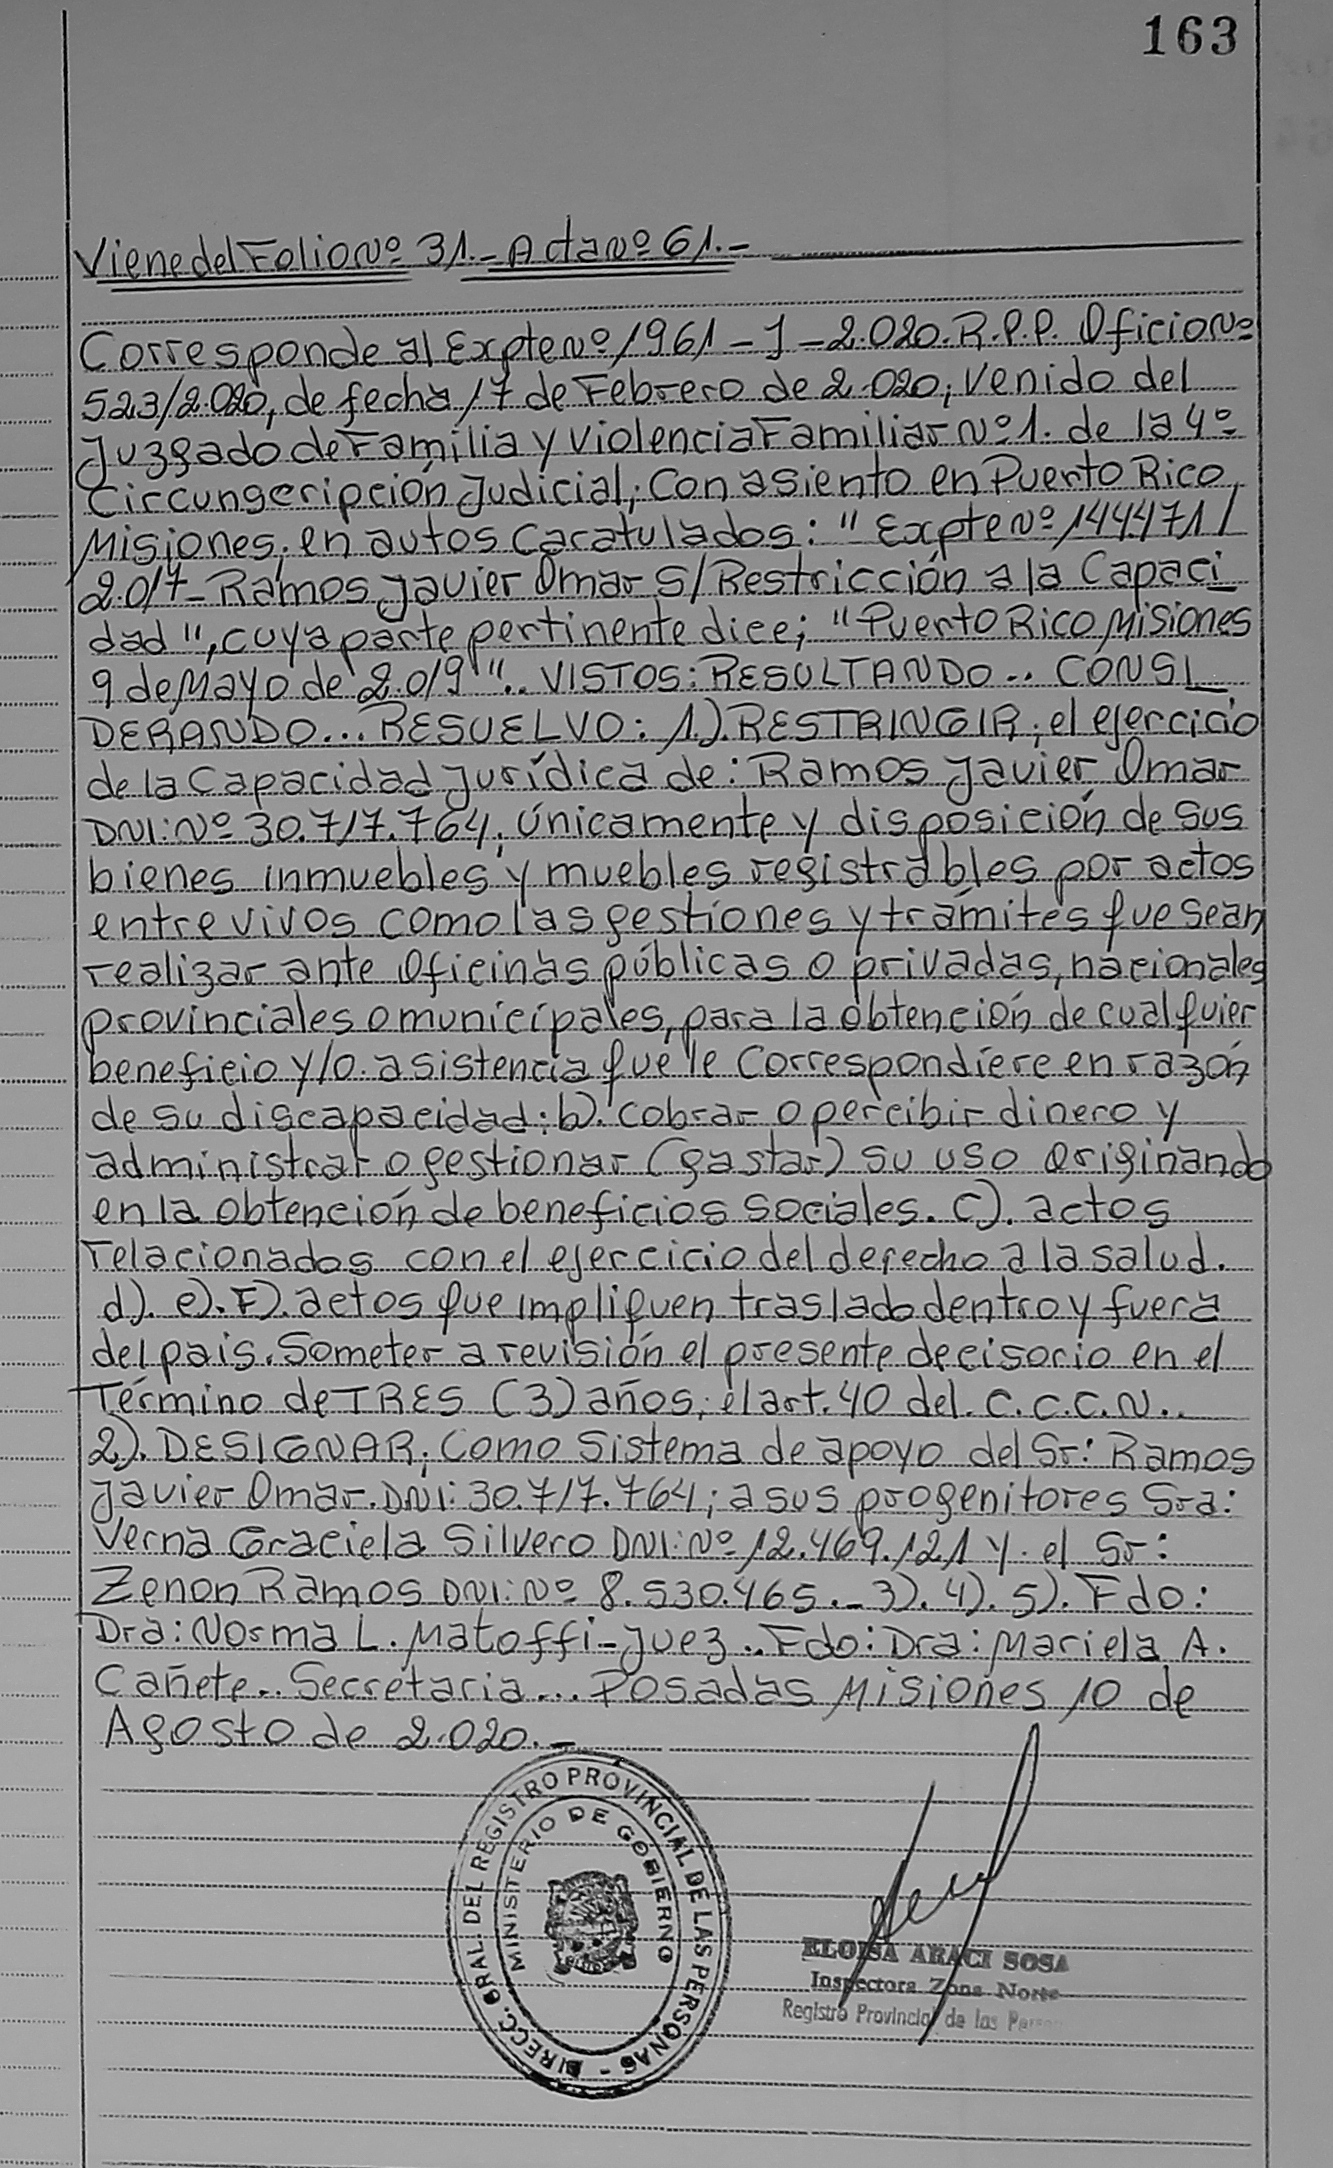 163
Viene del Folio Nº 31.- Acta Nº 61.-
Corresponde al Expte Nº 1961-J-2.020. R.P.P. Oficio Nº
523/2.020, de fecha 17 de Febrero de 2.020, venido del
Juzgado de Familia y Violencia Familiar Nº 1. de la 4º
Circungcripción Judicial, Con asiento en Puerto Rico,
Misiones, en autos Cacatulados: "Expte Nº 144471/
2.017- Ramos Javier Omar S/ Restricción a la Capaci
dad", cuya parte pertinente dice; "Puerto Rico, Misiones
9 de Mayo de 2.019".. VISTOS: RESULTANDO.. CONSI
DERANDO... RESUELVO: 1.). RESTRINGIR, el ejercicio
de la Capacidad Jurídica de: Ramos Javier Omar
DNI: Nº 30.717.764, únicamente y disposición de sus
bienes inmuebles y muebles registrables por actos
entre vivos como las gestiones y trámites que sean
realizar ante oficinas públicas o privadas, nacionales
provinciales o municipales, para la obtención de cualquier
beneficio y/o. asistencia que le Correspondiere en razón
de su discapacidad; b). cobrar o percibir dinero y
administrar o gestionar (gastar) su uso originando
en la obtención de beneficios sociales. C). actos
relacionados con el ejercicio del derecho a la salud.
d). e). F). actos que impliquen traslado dentro y fuera
del pais. Someter a revisión el presente decisorio en el
Término de TRES (3) años, el art. 40 del. C.C.C.N..
2). DESIGNAR; Como Sistema de apoyo del Sr: Ramos
Javier Omar. DNI: 30.717.764; a sus progenitores Sra:
Verna Graciela Silvero DNI: Nº 12.469.121 y. el Sr:
Zenon Ramos DNI: Nº 8.530.465.- 3). 4). 5). Fdo:
Dra: Norma L. Matoffi-Juez.. Fdo: Dra: Mariela A.
Cañete.. Secretaria... Posadas Misiones 10 de
Agosto de 2.020.-
DIRECC. GRAL. DEL REGISTRO PROVINCIAL DE LAS PERSONAS -
MINISTERIO DE GOBIERNO
ELOISA ARACI SOSA
Inspectora Zona Norte
Registro Provincial de las